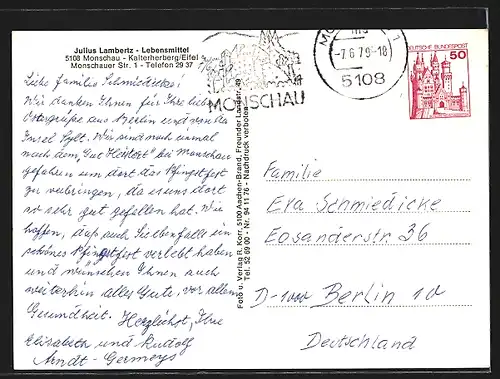 Julius Lambertz - Lebensmittel
5108 Monschau - Kalterherberg/Eifel
Monschauer Str. 1 - Telefon 29 37
Liebe Familie Schmiedicke!
Wir danken Ihnen für Ihre lieben
Ostergrüße aus Berlin und von der
Insel Sylt. Wir sind noch einmal
nach dem „Gut Heistert" bei Monschau
gefahren um dort das Pfingstfest
zu verbringen, da es uns dort
so sehr gut gefallen hat. Wir
hoffen, daß auch Sie ebenfalls ein
schönes Pfingstfest verlebt haben
und wünschen Ihnen auch
weiterhin alles Gute, vor allem
Gesundheit. Herzlichst, Ihre
Elisabeth und Rudolf
Arndt-Germerys
Foto u. Verlag R. Korr, 5100 Aachen-Brand, Freunder Landstr.
Tel. 52 69 00 - Nr. 94 11 76 - Nachdruck verboten
MONSCHAU
-7.6.79-18
5108
DEUTSCHE BUNDESPOST
50
Familie
Eva Schmiedicke
Eosanderstr. 36
D-1000 Berlin 10
Deutschland